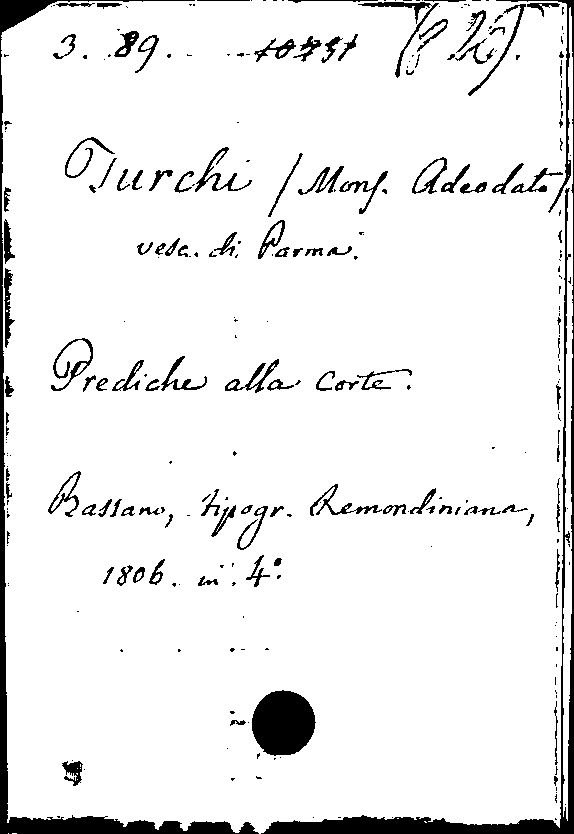 3. 89. 10731 (p 20).
Turchi (Mons. Adeodato)
vesc. di Parma.
Prediche alla Corte.
Bassano, tipogr. Remondiniana,
1806. in 4°.